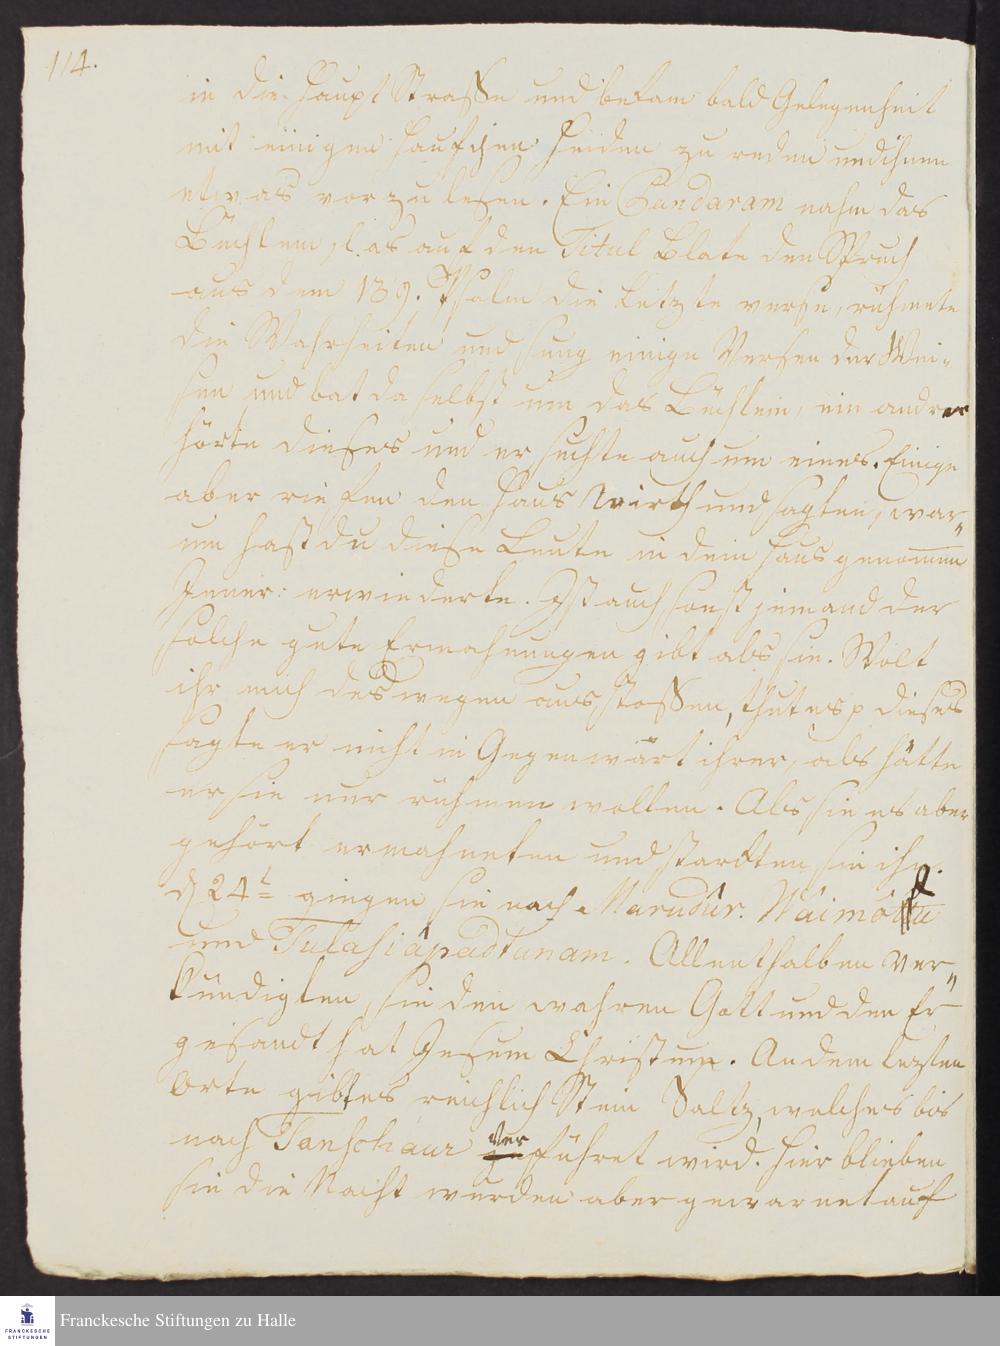 114.
in die Haupt Straße und bekam bald Gelegenheit
mit einigen Häufchen Heiden zu reden und ihnen
etwas vorzulesen. Ein Pandaram nahm das
Büchlein, las auf den Titul Blate den Spruch
aus dem 139. Psalm die letzte verse, rühmete
die Wahrheiten und sung einige Versen der Wei-
sen und bat da selbst um das Büchlein, ein andrer
hörte dieses und ersuchte auch um eines. Einige
aber riefen den Haus Wirth und sagten, war-
um hast du diese Leute in dein Haus genommen
Jener: erwiederte. Ist auch sonst jemand der
solche gute Ermahnungen gibt als sie. Wolt
ihr mich deswegen ausstoßen, thut es p dieses
sagte er nicht in Gegenwärt ihrer, als hätte
er sie nur rühmen wollen. Als sie es aber
gehört ermahneten und starckten sie ihn.
d 24t gingen sie nach Marudur. Waimöttu
und Tulasiápadtunam. Allenthalben ver-
kündigten sie den wahren Gott und den Er
gesandt hat Jesum Christum. An dem lezten
Orte gibt es reichlich Stein Saltz, welches bis
nach Tanschaur verführet wird. Hier blieben
sie die Nacht wurden aber gewarnet auf
Franckesche Stiftungen zu Halle
FRANCKESCHE
STIFTUNGEN